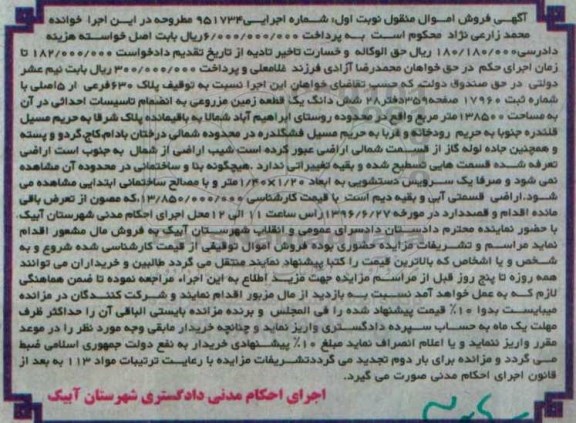 آگهی فروش اموال منقول نوبت اول: شماره اجرایی ۹۵۱۷۳۴ مطروحه در این اجرا خوانده
محمد زارعی نژاد محکوم است به پرداخت ۶/۰۰۰/۰۰۰/۰۰۰ ریال بابت اصل خواسته هزینه
دادرسی ۱۸۰/۱۸۰/۰۰۰ ریال حق الوکاله و خسارت تاخیر تادیه از تاریخ تقدیم دادخواست تا
زمان اجرای حکم در حق خواهان محمدرضا آزادی فرزند غلامعلی و پرداخت ۳۰۰/۰۰۰/۰۰۰ ریال بابت نیم عشر
دولتی در حق صندوق دولت که حسب تقاضای خواهان این اجرا نسبت به توقیف پلاک ۶۳۰ فرعی از ۵ اصلی با
شماره ثبت ۱۷۹۶۰ صفحه ۳۵۹ دفتر ۲۸ شش دانگ یک قطعه زمین مزروعی به انضمام تاسیسات احداثی در آن
به مساحت ۱۳۸۵۰۰ متر مربع واقع در محدوده روستای ابراهیم آباد شمالا به باقیمانده پلاک شرقا به حریم مسیل
قلندره جنوبا به حریم رودخانه و غربا به حریم مسیل فشگلدره در محدوده شمالی درختان بادام، کاج، گردو و پسته
و همچنین جاده لوله گاز از قسمت شمالی اراضی عبور کرده است شیب اراضی از شمال به جنوب است اراضی
تعرفه شده قسمت هایی تسطیح شده و بقیه تغییراتی ندارد. هیچگونه بنا و ساختمانی در محدوده آن مشاهده
نمی شود و صرفا یک سرویس دستشویی به ابعاد ۱/۲۰×۱/۴۰ متر و با مصالح ساختمانی ابتدایی مشاهده می
شود. اراضی قسمتی آبی و بقیه دیم است با قیمت کارشناسی ۱۳/۸۵۰/۰۰۰/۰۰۰ که مصون از تعرض باقی
مانده اقدام و قصد دارد در مورخه ۱۳۹۶/۶/۲۷ راس ساعت ۱۱ الی ۱۲ محل اجرای احکام مدنی شهرستان آبیک
با حضور نماینده محترم دادستان دادسرای عمومی و انقلاب شهرستان آبیک به فروش مال مشهور اقدام
نماید مراسم و تشریفات مزایده حضوری بوده فروش اموال توقیفی از قیمت کارشناسی شده شروع و به
شخص و یا اشخاص که بالاترین قیمت را کتبا پیشنهاد نمایند منتقل می گردد طالبین و خریداران می توانند
همه روزه تا پنج روز قبل از مراسم مزایده جهت مزید اطلاع به این اجراء مراجعه نموده تا ضمن هماهنگی
لازم که به عمل خواهد آمد نسبت به بازدید از مال مزبور اقدام نمایند و شرکت کنندگان در مزانده
میبایست بدوا ۱۰٪ قیمت پیشنهاد شده را فی المجلس و برنده مزانده بایستی الباقی آن را حداکثر ظرف
مهلت یک ماه به حساب سپرده دادگستری واریز نماید و چنانچه خریدار مابقی وجه مورد نظر را در موعد
مقرر واریز ننماید و یا اعلام انصراف نماید مبلغ ۱۰٪ پیشنهادی خریدار به نفع دولت جمهوری اسلامی ضبط
می گردد و مزانده برای بار دوم تجدید می گردد تشریفات مزایده با رعایت ترتیبات مواد ۱۱۳ به بعد از
قانون اجرای احکام مدنی صورت می گیرد.
اجرای احکام مدنی دادگستری شهرستان آبیک